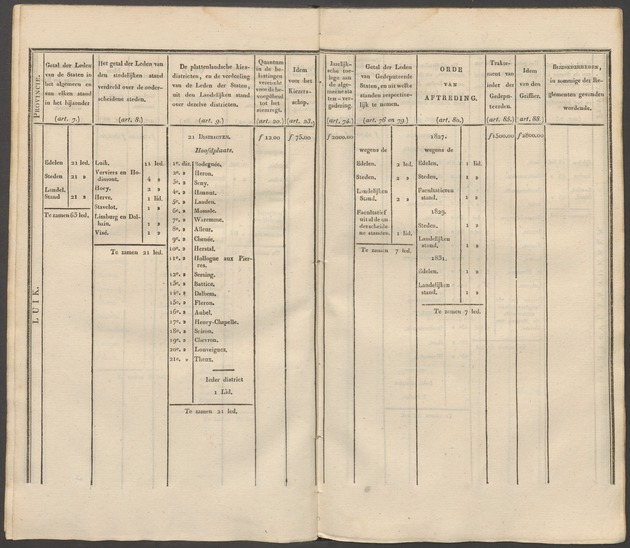 PROVINCIE.
Getal der Leden
van de Staten in
het algemeen en
van elken stand
in het bijzonder
(art. 7.)
Het getal der Leden van
den stedelijken stand
verdeeld over de onder-
scheidene steden.
(art. 8.)
De plattenlandsche kies-
districten, en de verdeeling
van de Leden der Staten,
uit den Landelijken stand
over dezelve districten.
(art. 9.)
Quantum
in de be-
lastingen
vereischt
voor de be-
voegdheid
tot het
stemregt.
(art. 20.)
Idem
van het
Kiezers-
schap.
(art. 28.)
Jaarlijk-
sche toe-
lage aan
de alge-
meene sta-
ten-ver-
gadering.
(art. 74.)
Getal der Leden
van Gedeputeerde
Staten, en uit welke
standen respective-
lijk te nemen.
(art. 78 en 79.)
ORDE
VAN
AFTREDING.
(art. 80.)
Trakte-
ment van
ieder der
Gedepu-
teerden.
(art. 85.)
Idem
van den
Griffier.
(art. 88.)
BIJZONDERHEDEN,
in sommige der Re-
glementen gevonden
wordende.
LUIK.
Edelen 21 led.
Steden 21 »
Landel.
Stand 21 »
Te zamen 63 led.
Luik. 11 led.
Verviers en Ho-
dimont. 4 »
Hoey. 2 »
Herve. 1 lid.
Stavelot. 1 »
Limburg en Dal-
hain. 1 »
Visé. 1 »
Te zamen 21 led.
21 DISTRICTEN.
Hoofdplaats.
1e. dist. Bodegnée.
2e. » Heron.
3e. » Seny.
4e. » Hannut.
5e. » Landen.
6e. » Momale.
7e. » Waremme.
8e. » Alleur.
9e. » Chenée.
10e. » Herstal.
11e. » Hollogne aux Pier-
res.
12e. » Seraing.
13e. » Battice.
14e. » Dalhem.
15e. » Fleron.
16e. » Aubel.
17e. » Henry-Chapelle.
18e. » Soiron.
19e. » Chevron.
20e. » Louveigner.
21e. » Theux.
Ieder district
1 Lid.
Te zamen 21 led.
f 12.00
f 75.00
f 2000.00
wegens de
Edelen. 2 led.
Steden. 2 »
Landelijken
Stand. 2 »
Facultatief
uit al de on-
derscheide-
ne standen. 1 lid.
Te zamen 7 led.
1827.
wegens de
Edelen. 1 lid.
Steden. 1 »
Facultatieven
stand. 1 »
1829.
Steden. 1 »
Landelijken
stand. 1 »
1831.
Edelen. 1 »
Landelijken
stand. 1 »
Te zamen 7 led.
f 1500.00
f 2800.00